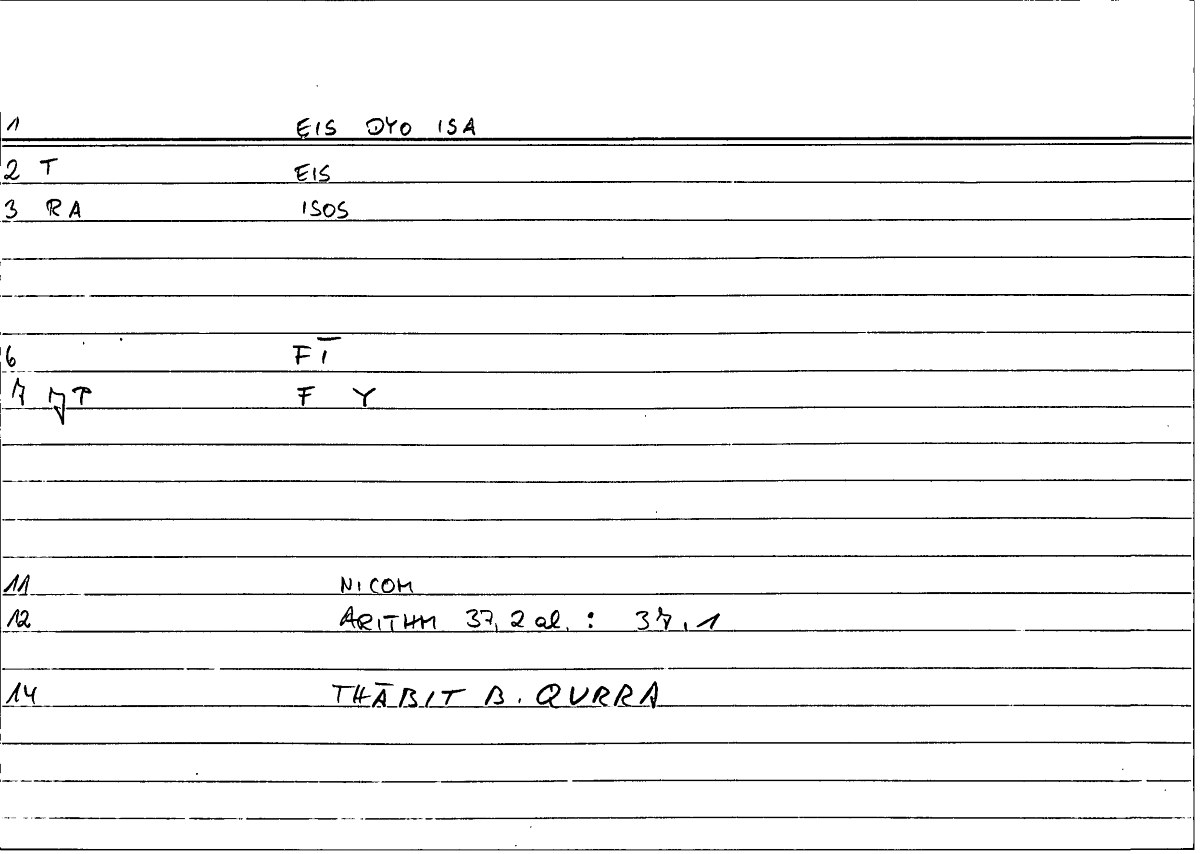 1 EIS DYO ISA
2 T EIS
3 RA ISOS
6 FĪ
7 F Y
11 NICOM
12 ARITHM 37, 2 al. : 37, 1
14 THĀBIT B. QURRA